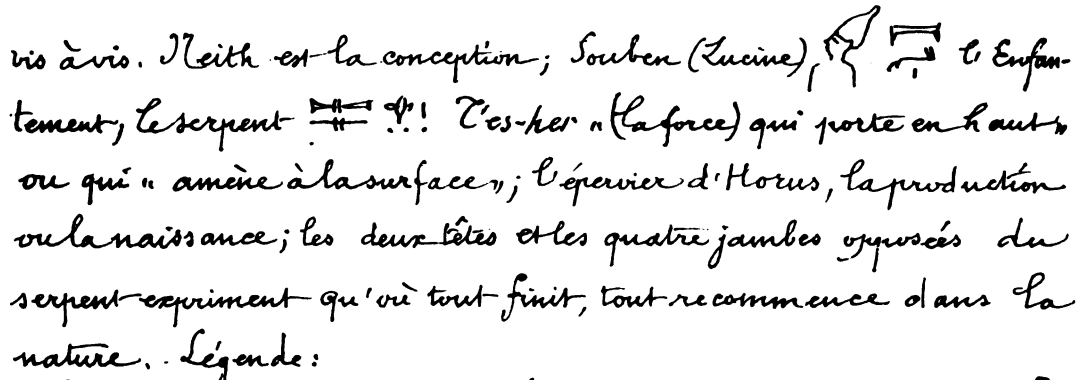 vis à vis. Neith est la conception; Souben (Lucine) l'Enfan-
tement; le serpent ! T'es-her « (la force) qui porte en haut »
ou qui « amène à la surface »; l'épervier d'Horus, la production
ou la naissance; les deux têtes et les quatre jambes opposées du
serpent expriment qu'où tout finit, tout recommence dans la
nature. . Légende: